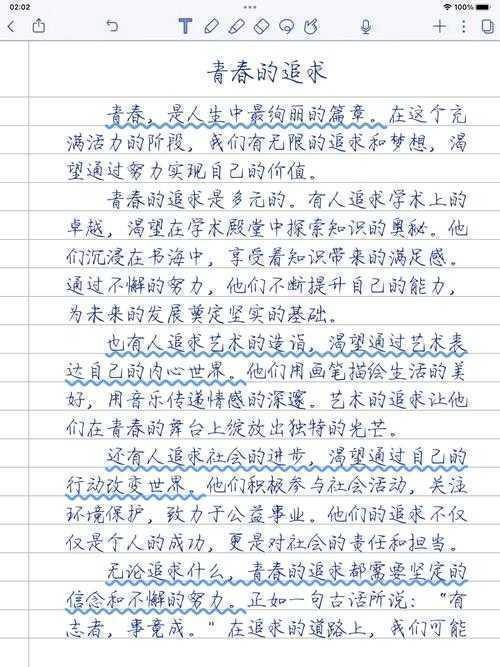 02:02
100%
青春的追求
青春，是人生中最绚丽的篇章。在这个充
满活力的阶段，我们有无限的追求和梦想，渴
望通过努力实现自己的价值。
青春的追求是多元的。有人追求学术上的
卓越，渴望在学术殿堂中探索知识的奥秘。他
们沉浸在书海中，享受着知识带来的满足感。
通过不懈的努力，他们不断提升自己的能力，
为未来的发展奠定坚实的基础。
也有人追求艺术的造诣，渴望通过艺术表
达自己的内心世界。他们用画笔描绘生活的美
好，用音乐传递情感的深邃。艺术的追求让他
们在青春的舞台上绽放出独特的光芒。
还有人追求社会的进步，渴望通过自己的
行动改变世界。他们积极参与社会活动，关注
环境保护，致力于公益事业。他们的追求不仅
仅是个人的成功，更是对社会的责任和担当。
无论追求什么，青春的追求都需要坚定的
信念和不懈的努力。正如一句古话所说：“有
志者，事竟成。”在追求的道路上，我们可能